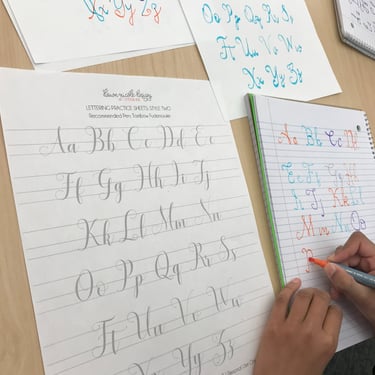 Xx Yy Zz
Oo Pp Qq Rr Ss
Tt Uu Vv Ww
Xx Yy Zz
LETTERING PRACTICE SHEETS: STYLE TWO
Recommended Pen: Tombow Fudenosuke
Aa Bb Cc Dd Ee
Ff Gg Hh Ii Jj
Kk Ll Mm Nn
Oo Pp Qq Rr Ss
Tt Uu Vv Ww
Xx Yy Zz
Aa Bb Cc Dd
Ee Ff Gg Hh
Ii Jj Kk Ll
Mm Nn Oo